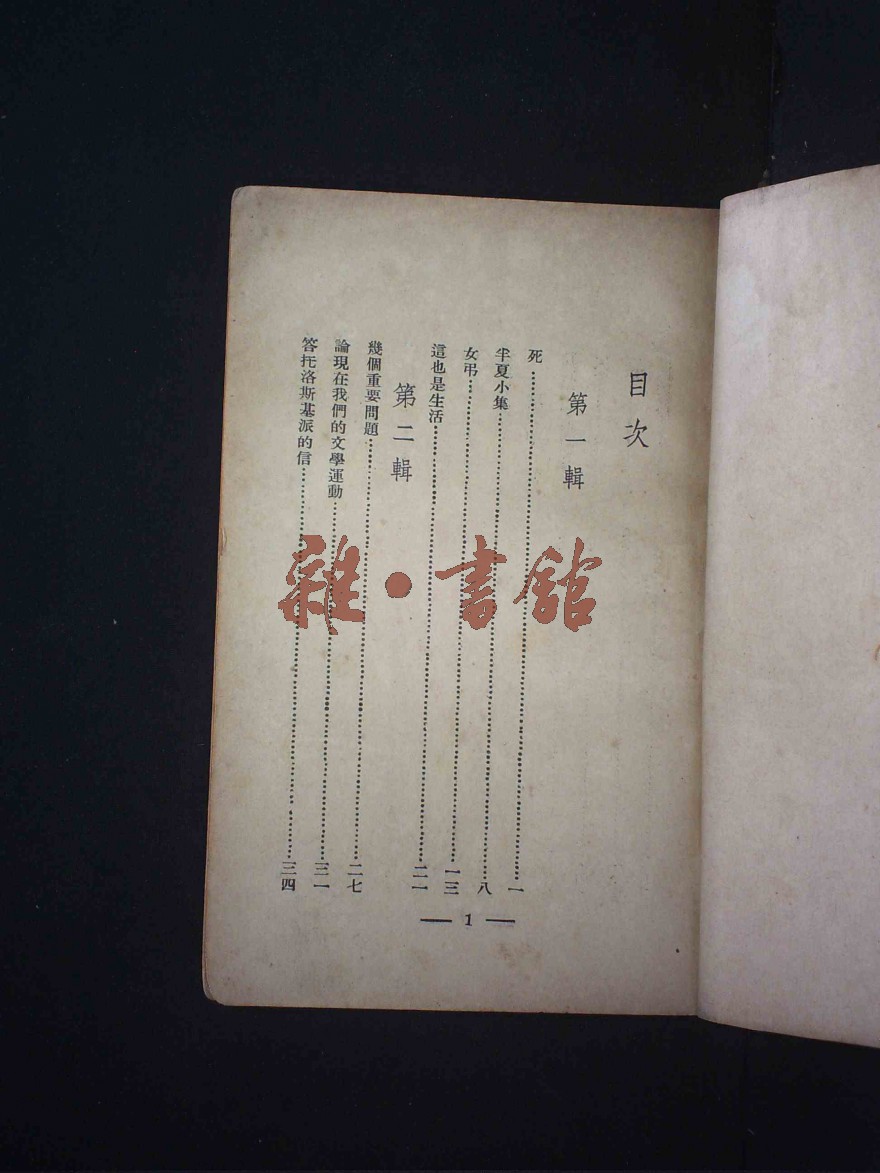 目次
第一輯
死……一
半夏小集……八
女弔……一三
這也是生活……二一
第二輯
幾個重要問題……二七
論現在我們的文學運動……三一
答托洛斯基派的信……三四
— 1 —
雜·書館